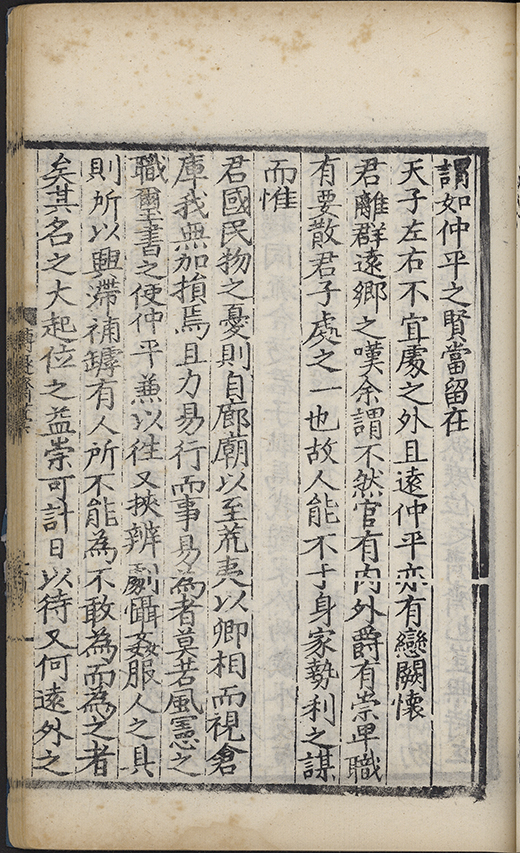 謂如仲平之賢當留在
天子左右不宜處之外且遠仲平亦有戀闕懷
君離群遠鄉之嘆余謂不然官有內外爵有崇卑職
有要散君子處之一也故人能不于身家勢利之謀
而惟
君國民物之憂則自廊廟以至荒夷以卿相而視倉
庫我無加損焉且力易行而事易為者莫若風憲之
職爾璽書之使仲平兼以往又挾辨劇懾姦服人之具
則所以興滯補罅有人所不能為不敢為而為之者
矣其名之大起位之益崇可計日以待又何遠外之